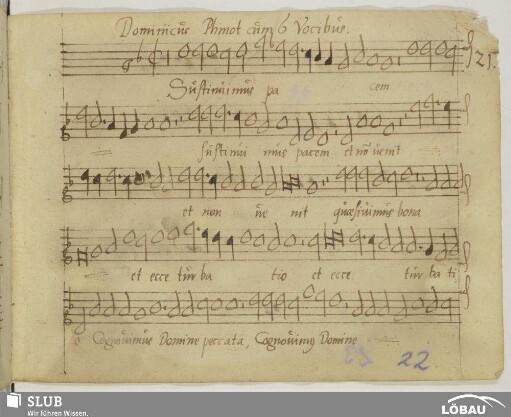 Dominicus Phinot cum 6 Vocibus.
21.
Sustinuimus pa cem
sustinui mus pacem et no uenit
et non ue nit quæsiuimus bona
et ecce tur ba tio et ecce tur ba ti
o Cognouimus Domine peccata, Cognouimus Domine
22
SLUB
Wir führen Wissen.
LÖBAU